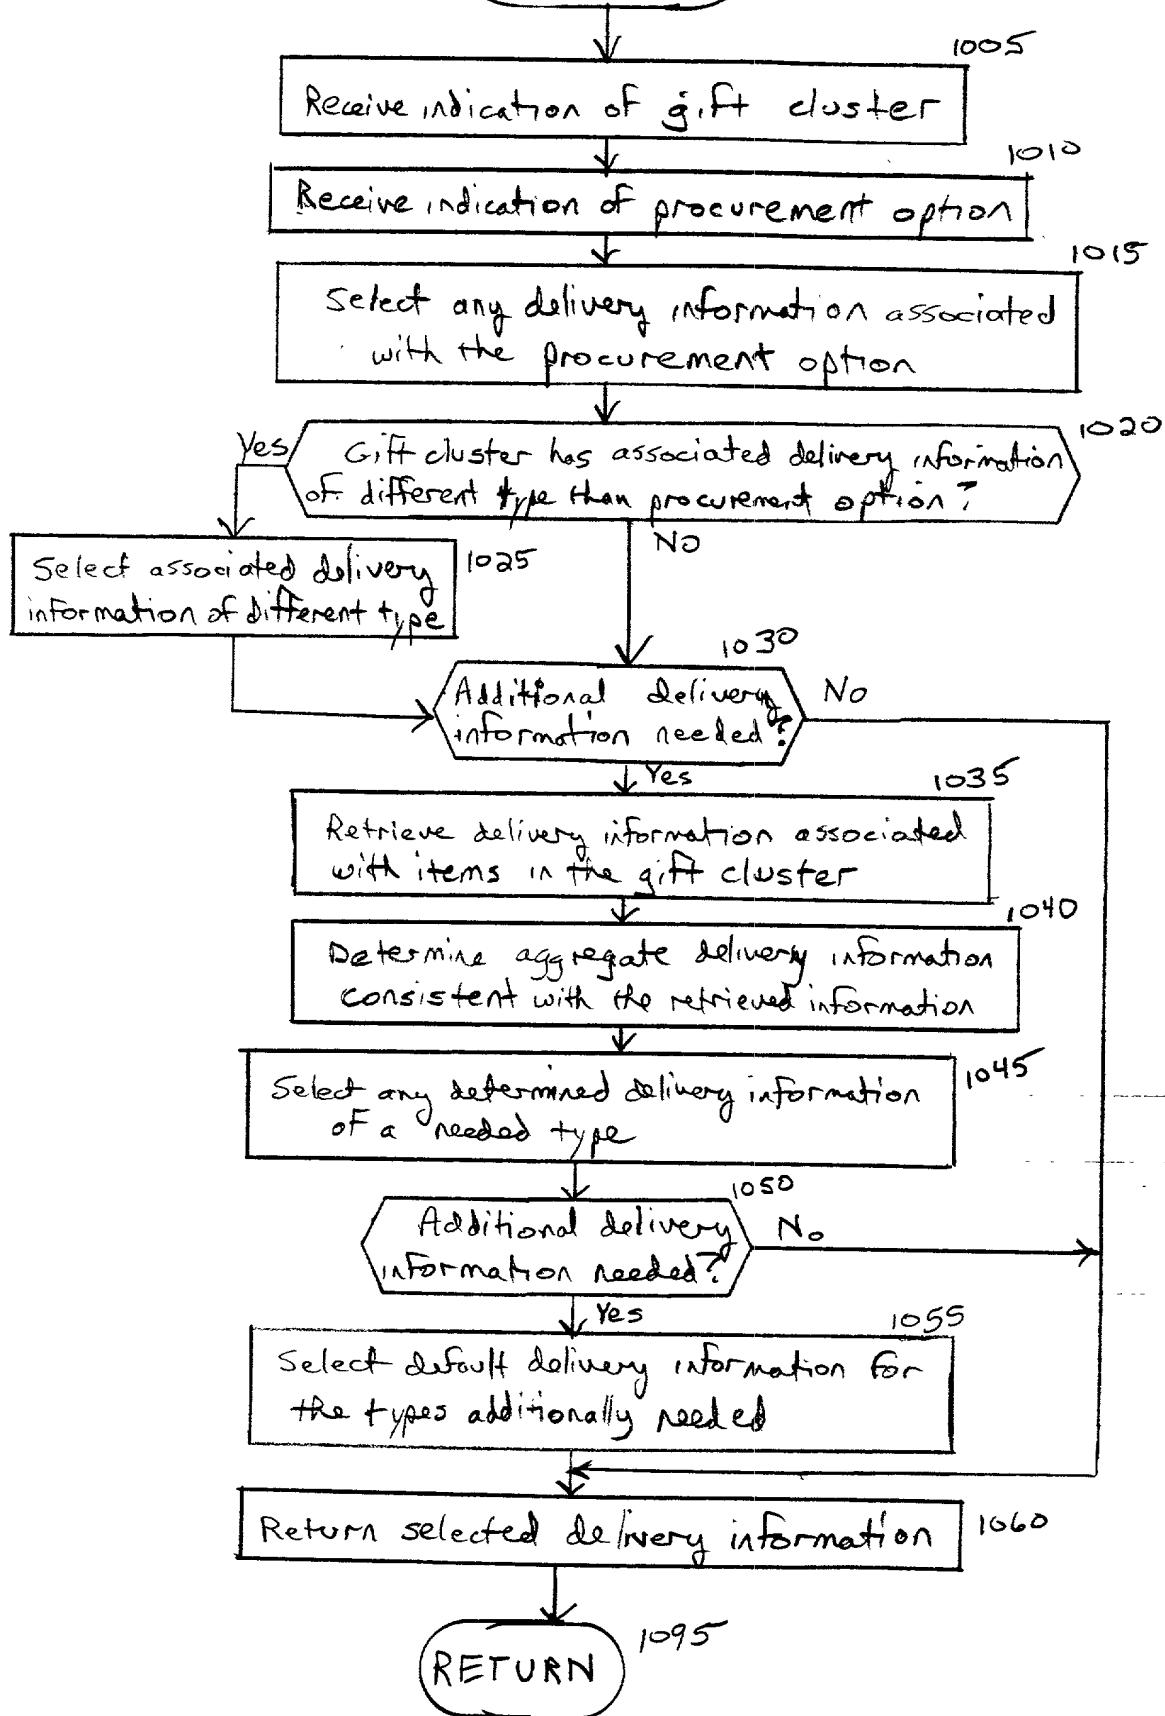 1005
Receive indication of gift cluster
1010
Receive indication of procurement option
1015
Select any delivery information associated
with the procurement option
1020
Gift cluster has associated delivery information
of different type than procurement option?
Yes
No
1025
Select associated delivery
information of different type
1030
Additional delivery
information needed?
No
Yes
1035
Retrieve delivery information associated
with items in the gift cluster
1040
Determine aggregate delivery information
consistent with the retrieved information
1045
Select any determined delivery information
of a needed type
1050
Additional delivery
information needed?
No
Yes
1055
Select default delivery information for
the types additionally needed
1060
Return selected delivery information
1095
RETURN